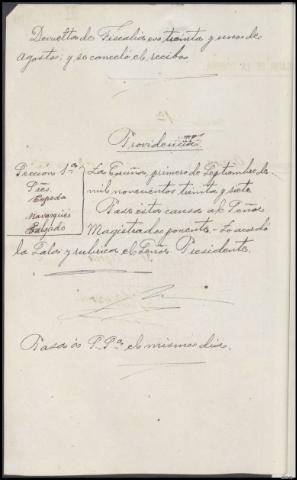 Devuelta de Fiscalia en treinta y uno de
Agosto; y se canceló el recibo
Providencia
Sección 1ª
Pres.
Cepeda
Navarques
Salgado
La Coruña, primero de Septiembre de
mil novecientos treinta y siete
Pase esta causa al Señor
Magistrado ponente.- Lo acordó
la Sala y rubrica el Señor Presidente.
Pasa á el mismo dia.